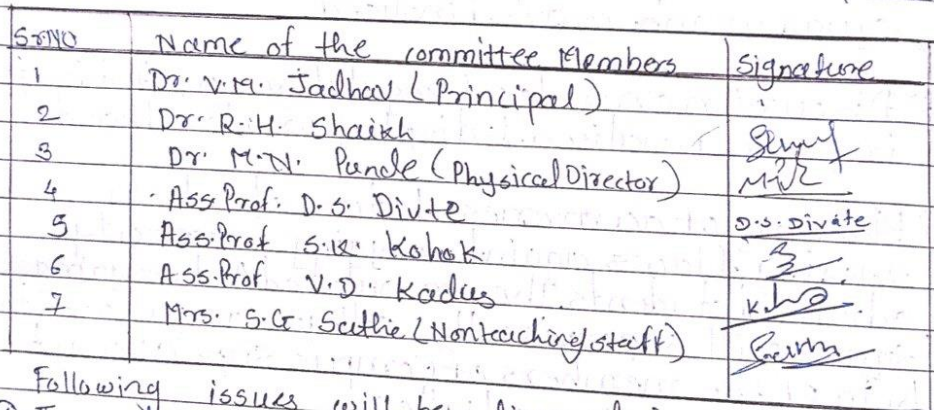 Sr.No Name of the committee Members Signature
1 Dr. V.M. Jadhav (Principal)
2 Dr. R.H. Shaikh
3 Dr. M.N. Punde (Physical Director)
4 Ass Prof. D.S. Divte D.S. Divate
5 Ass.Prof S.K. Kohok
6 Ass.Prof V.D. Kadus
7 Mrs. S.G Sathe (Nonteaching staff)
Following issues will be